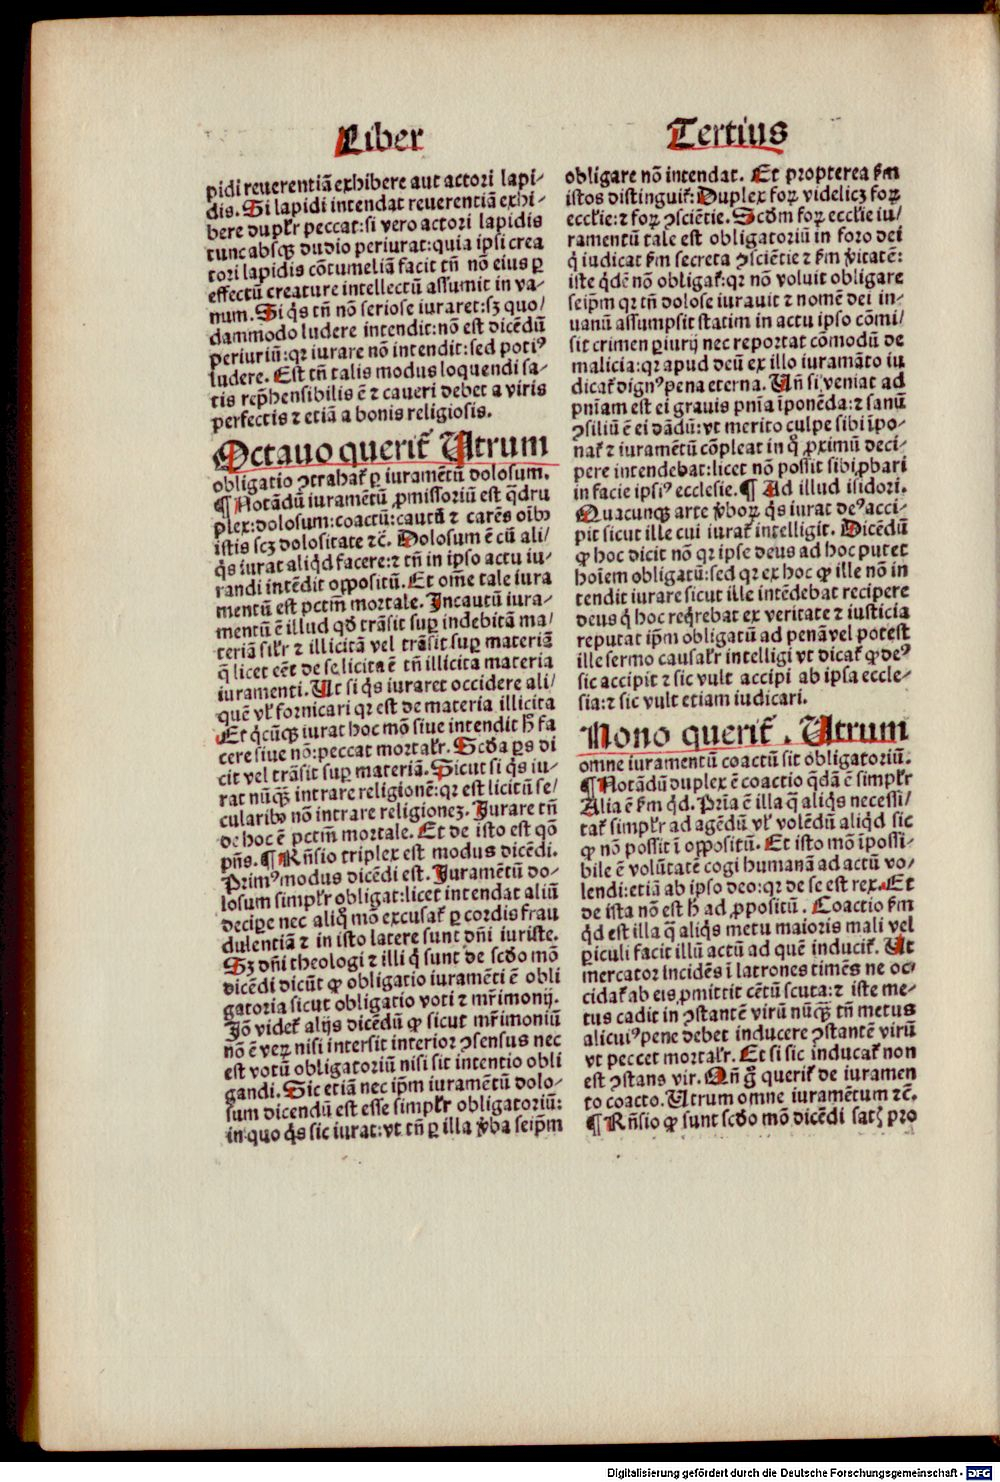 Liber
Tertius
pidi reuerentiā exhibere aut actori lapi-
dis. Si lapidi intendat reuerentiā exhi-
bere duplr̄ peccat: si vero actori lapidis
tunc absqꝫ dudio periurat: quia ipsi crea
tori lapidis cōtumeliā facit tn̄ nō eius ꝑ
effectū creature intellectū assumit in va-
num. Si q̇s tn̄ nō seriose iuraret: sꝫ quo/
dammodo ludere intendit: nō est dicēdū
periuriū: qꝛ iurare nō intendit: sed potiꝰ
ludere. Est tn̄ talis modus loquendi sa-
tis rep̄hensibilis ē ⁊ caueri debet a viris
perfectis ⁊ etiā a bonis religiosis.
Octauo querit̄ Utrum
obligatio ꝯtrahat̄ ꝑ iuramētū dolosum.
¶ Notādū iuramētū ꝓmissoriū est q̄dru
plex: dolosum: coactū: cautū ⁊ carēs oībꝰ
istis scꝫ dolositate ⁊c̄. Dolosum ē cū ali/
q̇s iurat aliq̇d facere: ⁊ tn̄ in ipso actu iu-
randi intēdit oppositū. Et om̄e tale iura
mentū est pctm̄ mortale. Incautū iura-
mentū ē illud qd̄ trāsit suꝑ indebitā ma/
teriā silr̄ ⁊ illicitā vel trāsit suꝑ materiā
q̄ licet eēt de se licita ē tn̄ illicita materia
iuramenti. Ut si q̇s iuraret occidere ali/
quē vl̄ fornicari qꝛ est de materia illicita
Et q̇cūqꝫ iurat hoc mō siue intendit h̄ fa
cere siue nō: peccat mortalr̄. Scd̄a ꝑs di
cit vel trāsit suꝑ materiā. Sicut si q̇s iu-
rat nūq̄ꝫ intrare religionē: qꝛ est licitū se/
cularibꝰ nō intrare religionez. Iurare tn̄
de hoc ē pctm̄ mortale. Et de isto est qō
pn̄s. ¶ Rn̄sio triplex est modus dicēdi.
Primꝰ modus dicēdi est. Iuramētū do-
losum simplr̄ obligat: licet intendat aliū
deciꝑe nec aliq̇ mō excusat̄ ꝑ cordis frau
dulentiā ⁊ in isto latere sunt dn̄i iuriste.
Sꝫ dn̄i theologi ⁊ illi q̇ sunt de scd̄o mō
dicēdi dicūt ꝙ obligatio iuramēti ē obli
gatoria sicut obligatio voti ⁊ mr̄imonij.
Iō videt̄ alijs dicēdū ꝙ sicut mr̄imoniū
nō ē veꝝ nisi intersit interior ꝯsensus nec
est votū obligatoriū nisi sit intentio obli
gandi. Sic etiā nec ip̄m iuramētū dolo-
sum dicendū est esse simplr̄ obligatoriū:
in quo q̇s sic iurat: vt tn̄ ꝑ illa v̄ba seip̄m
obligare nō intendat. Et propterea s̄m
istos distinguit̄: Duplex foꝝ videlicꝫ foꝝ
eccl̄ie: ⁊ foꝝ ꝯsciētie. Scd̄m foꝝ eccl̄ie iu/
ramentū tale est obligatoriū in foro dei
q̇ iudicat s̄m secreta ꝯsciētie ⁊ s̄m v̄itatē:
iste q̇dē nō obligat̄: qꝛ nō voluit obligare
seip̄m qꝛ tn̄ dolose iurauit ⁊ nomē dei in-
uanū assumpsit statim in actu ipso cōmi/
sit crimen ꝑiurij nec reportat cōmodū de
malicia: qꝛ apud deū ex illo iuramāto iu
dicat̄ dignꝰ pena eterna. Un̄ si veniat ad
pn̄iam est ei grauis pn̄ia īponēda: ⁊ sanū
ꝯsiliū ē ei dādū: vt merito culpe sibi īpo-
nat̄ ⁊ iuramētū cōpleat in q̊ ꝓximū deci-
pere intendebat: licet nō possit sibi ꝓbari
in facie ipsiꝰ ecclesie. ¶ Ad illud isidori.
Quacunqꝫ arte v̄boꝝ q̇s iurat deꝰ acci-
pit sicut ille cui iurat̄ intelligit. Dicēdū
ꝙ hoc dicit nō qꝛ ipse deus ad hoc putet
hoīem obligatū: sed qꝛ ex hoc ꝙ ille nō in
tendit iurare sicut ille intēdebat recipere
deus q̇ hoc req̇rebat ex veritate ⁊ iusticia
reputat ip̄m obligatū ad penā vel potest
ille sermo causalr̄ intelligi vt dicat̄ ꝙ deꝰ
sic accipit ⁊ sic vult accipi ab ipsa eccle-
sia: ⁊ sic vult etiam iudicari.
Nono querit̄. Utrum
omne iuramentū coactū sit obligatoriū.
¶ Notādū duplex ē coactio q̄dā ē simplr̄
Alia ē s̄m q̇d. Prīa ē illa q̄ aliq̇s necessi/
tat̄ simplr̄ ad agēdū vl̄ volēdū aliq̇d sic
ꝙ nō possit ī oppositū. Et isto mō īpossi-
bile ē volūtatē cogi humanā ad actū vo/
lendi: etiā ab ipso deo: qꝛ de se est rex. Et
de ista nō est h̄ ad ꝓpositū. Coactio s̄m
q̇d est illa q̄ aliq̇s metu maioris mali vel
ꝑiculi facit illū actū ad quē inducit̄. Ut
mercator incidēs ī latrones timēs ne oc/
cidat̄ ab eis ꝓmittit cētū scuta: ⁊ iste me-
tus cadit in ꝯstantē virū nūq̄ꝫ tn̄ metus
alicuiꝰ pene debet inducere ꝯstantē virū
vt peccet mortalr̄. Et si sic inducat̄ non
est ꝯstans vir. Qn̄ g̊ querit̄ de iuramen
to coacto. Utrum omne iuramētum ⁊c̄.
¶ Rn̄sio ꝙ sunt scd̄o mō dicēdi satꝫ pro
Digitalisierung gefördert durch die Deutsche Forschungsgemeinschaft - DFG